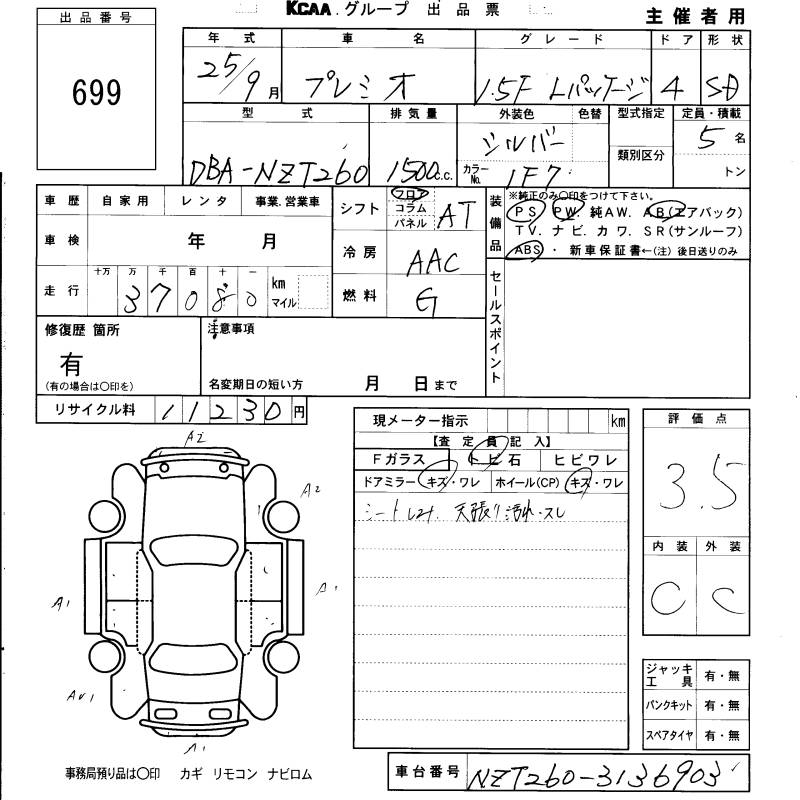 KCAA グループ 出品票
主催者用
出品番号
699
年式 車名 グレード ドア 形状
25/9月 プレミオ 1.5F Lパッケージ 4 SD
型式 排気量 外装色 色替 型式指定 定員・積載
DBA-NZT260 1500c.c. シルバー カラーNo. 1F7 類別区分 5名
トン
車歴 自家用 レンタ 事業.営業車
車検 年 月
走行 十万 万 千 百 十 一
37080 km マイル
シフト フロア コラム パネル AT
冷房 AAC
燃料 G
装備品 ※純正のみ〇印をつけて下さい。
PS PW. 純AW. AB(エアバック)
TV. ナビ. カワ. SR(サンルーフ)
ABS ・ 新車保証書←(注)後日送りのみ
セールスポイント
修復歴 箇所
有
(有の場合は〇印を)
注意事項
名変期日の短い方 月 日まで
リサイクル料 11230円
現メーター指示 km
【査定員記入】
Fガラス トビ石 ヒビワレ
ドアミラー キズ・ワレ ホイール(CP) キズ・ワレ
シートしみ. 天張り汚れ・スレ
評価点
3.5
内装 外装
C C
A2
A2
A1
A1
AU1
A1
ジャッキ工具 有・無
パンクキット 有・無
スペアタイヤ 有・無
事務局預り品は〇印 カギ リモコン ナビロム
車台番号 NZT260-3136903